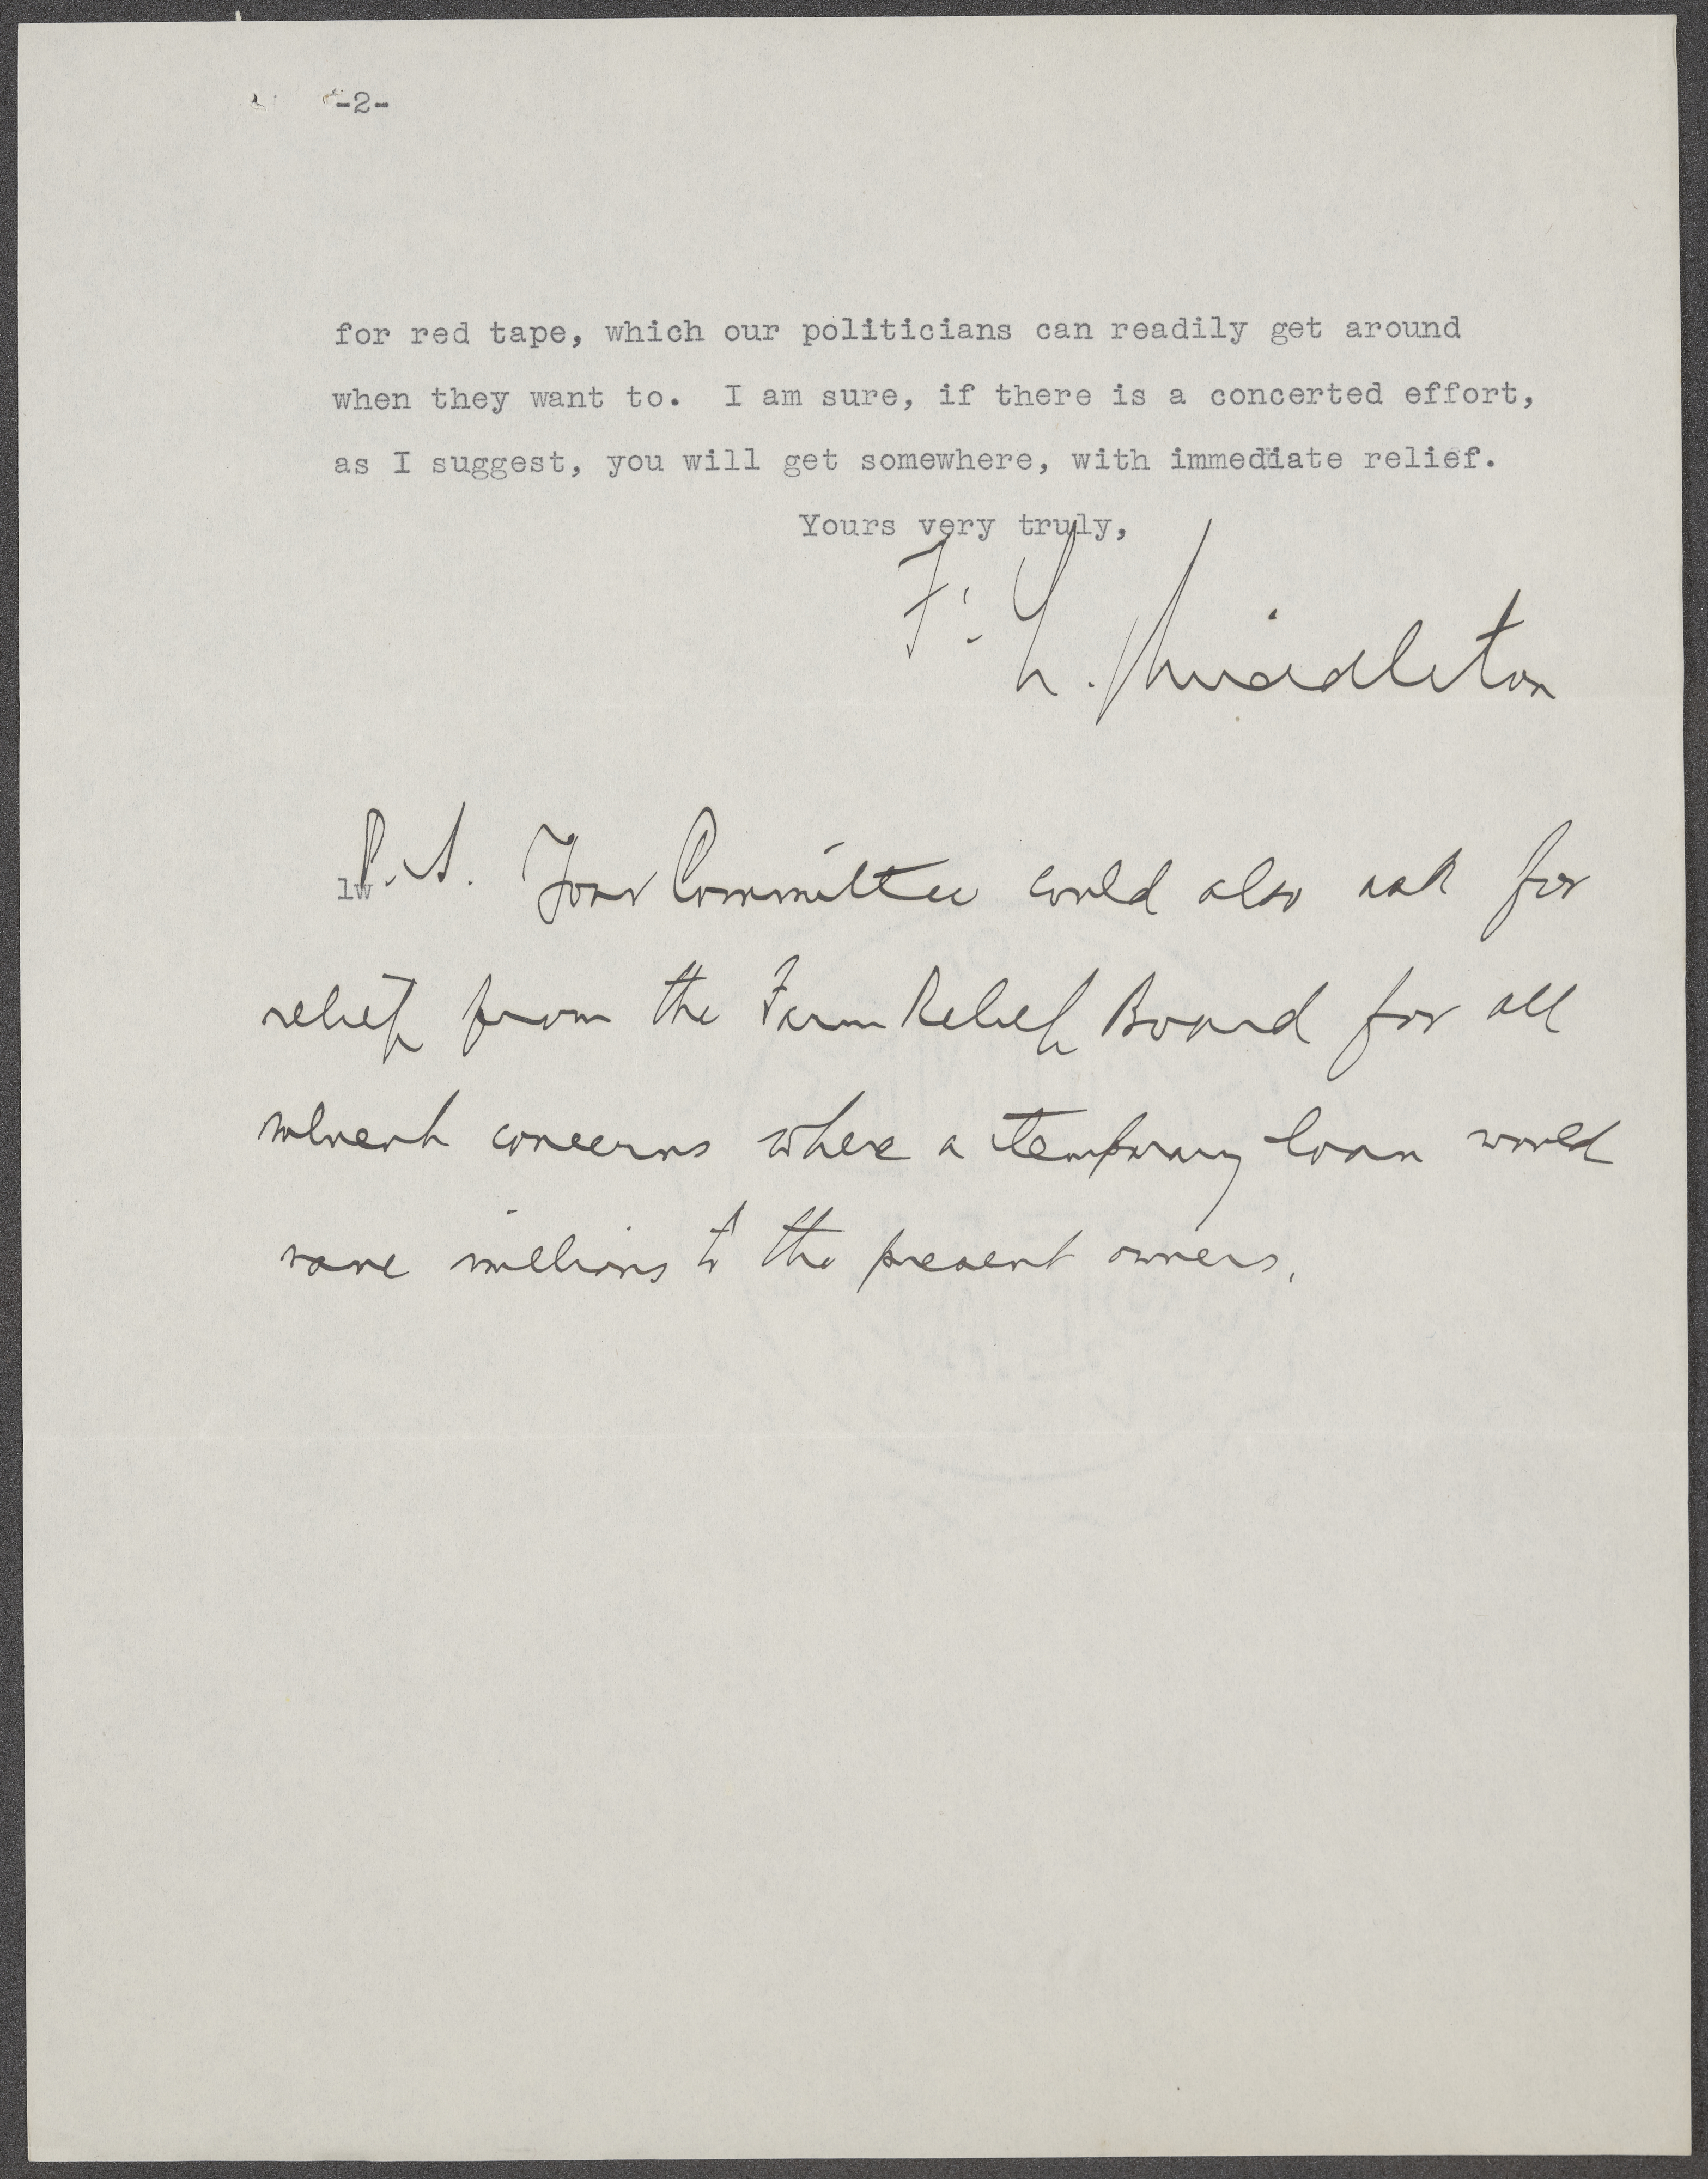 -2-
for red tape, which our politicians can readily get around
when they want to. I am sure, if there is a concerted effort,
as I suggest, you will get somewhere, with immediate relief.
Yours very truly,
F. L. Middleton
P.S. Your Committee could also ask for
lw
relief from the Farm Relief Board for all
solvent concerns where a temporary loan would
save millions to the present owners.